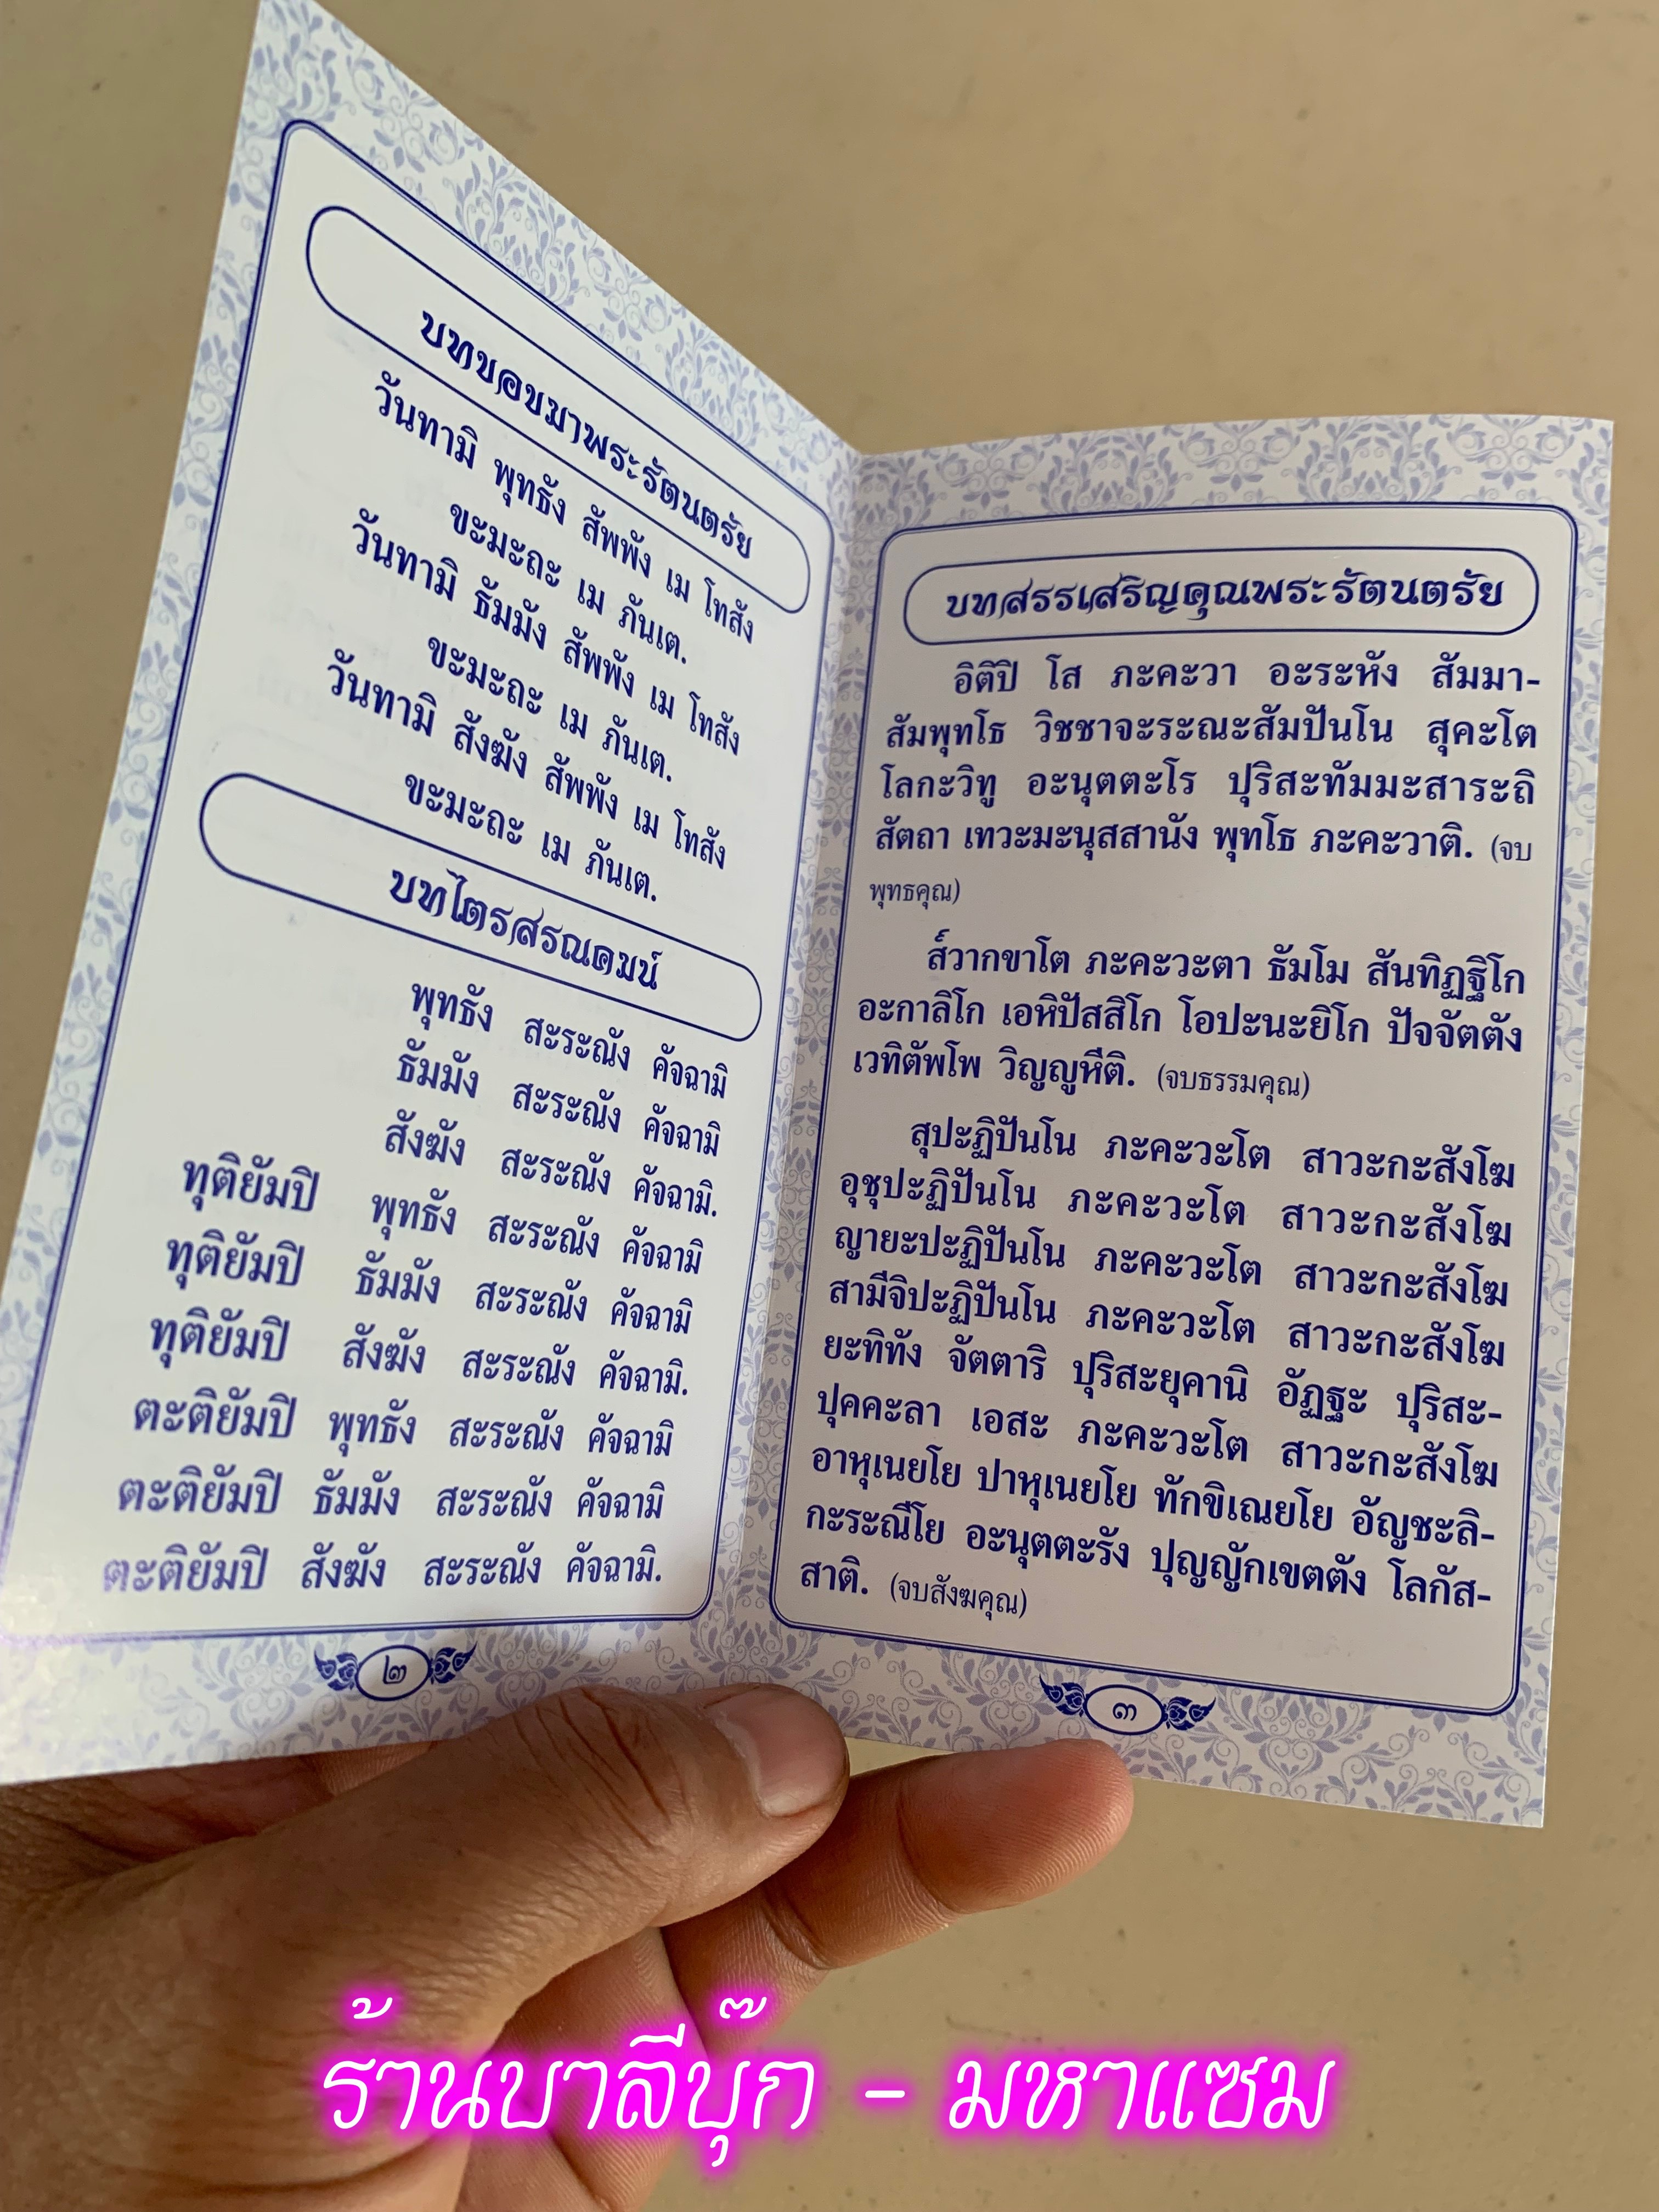 บทขอขมาพระรัตนตรัย
วันทามิ พุทธัง สัพพัง เม โทสัง
ขะมะถะ เม ภันเต.
วันทามิ ธัมมัง สัพพัง เม โทสัง
ขะมะถะ เม ภันเต.
วันทามิ สังฆัง สัพพัง เม โทสัง
ขะมะถะ เม ภันเต.
บทไตรสรณคมน์
พุทธัง สะระณัง คัจฉามิ
ธัมมัง สะระณัง คัจฉามิ
สังฆัง สะระณัง คัจฉามิ.
ทุติยัมปิ พุทธัง สะระณัง คัจฉามิ
ทุติยัมปิ ธัมมัง สะระณัง คัจฉามิ
ทุติยัมปิ สังฆัง สะระณัง คัจฉามิ.
ตะติยัมปิ พุทธัง สะระณัง คัจฉามิ
ตะติยัมปิ ธัมมัง สะระณัง คัจฉามิ
ตะติยัมปิ สังฆัง สะระณัง คัจฉามิ.
๒
บทสรรเสริญคุณพระรัตนตรัย
อิติปิ โส ภะคะวา อะระหัง สัมมา-
สัมพุทโธ วิชชาจะระณะสัมปันโน สุคะโต
โลกะวิทู อะนุตตะโร ปุริสะทัมมะสาระถิ
สัตถา เทวะมะนุสสานัง พุทโธ ภะคะวาติ. (จบ
พุทธคุณ)
ส๎วากขาโต ภะคะวะตา ธัมโม สันทิฏฐิโก
อะกาลิโก เอหิปัสสิโก โอปะนะยิโก ปัจจัตตัง
เวทิตัพโพ วิญญูหีติ. (จบธรรมคุณ)
สุปะฏิปันโน ภะคะวะโต สาวะกะสังโฆ
อุชุปะฏิปันโน ภะคะวะโต สาวะกะสังโฆ
ญายะปะฏิปันโน ภะคะวะโต สาวะกะสังโฆ
สามีจิปะฏิปันโน ภะคะวะโต สาวะกะสังโฆ
ยะทิทัง จัตตาริ ปุริสะยุคานิ อัฏฐะ ปุริสะ-
ปุคคะลา เอสะ ภะคะวะโต สาวะกะสังโฆ
อาหุเนยโย ปาหุเนยโย ทักขิเณยโย อัญชะลิ-
กะระณีโย อะนุตตะรัง ปุญญักเขตตัง โลกัส-
สาติ. (จบสังฆคุณ)
๓
ร้านบาลีบุ๊ก - มหาแซม